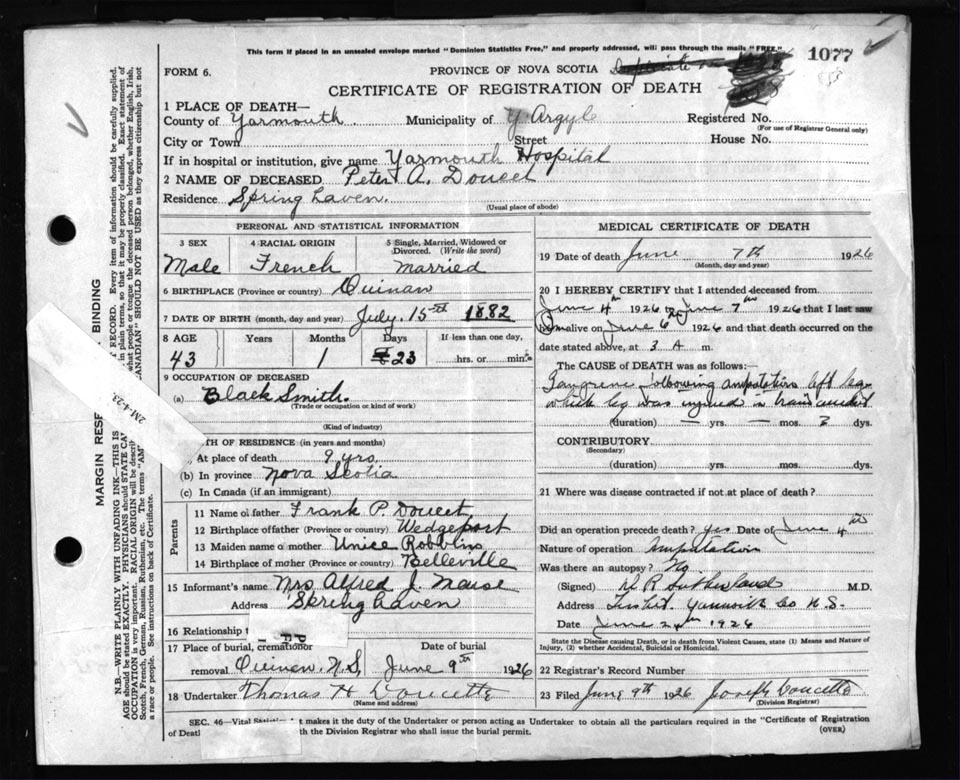 This form if placed in an unsealed envelope marked "Dominion Statistics Free," and properly addressed, will pass through the mails "FREE."
1077
FORM 6.
PROVINCE OF NOVA SCOTIA
CERTIFICATE OF REGISTRATION OF DEATH
1 PLACE OF DEATH—
County of Yarmouth Municipality of Y. Argyle Registered No.
(For use of Registrar General only)
City or Town Street House No.
If in hospital or institution, give name Yarmouth Hospital
2 NAME OF DECEASED Peter A. Doucet
Residence Spring haven.
(Usual place of abode)
PERSONAL AND STATISTICAL INFORMATION
3 SEX 4 RACIAL ORIGIN 5 Single, Married, Widowed or Divorced. (Write the word)
Male French Married
6 BIRTHPLACE (Province or country) Quinan
7 DATE OF BIRTH (month, day and year) July. 15th 1882
8 AGE Years Months Days If less than one day,
43 1 23 hrs. or min.
9 OCCUPATION OF DECEASED
(a) Black Smith.
(Trade or occupation or kind of work)
(Kind of industry)
TH OF RESIDENCE (in years and months)
At place of death 9 yrs
(b) In province Nova Scotia
(c) In Canada (if an immigrant)
Parents
11 Name of father Frank P. Doucet
12 Birthplace of father (Province or country) Wedgeport
13 Maiden name of mother Unice Robblin
14 Birthplace of mother (Province or country) Belleville
15 Informant's name Mrs Alfred J. Meuse
Address Spring haven
16 Relationship t
17 Place of burial, cremation or
removal Quinan, N.S.
Date of burial
June 9th 1926
18 Undertaker Thomas H Doucette
(Name and address)
MEDICAL CERTIFICATE OF DEATH
19 Date of death June 7th 1926
(Month, day and year)
20 I HEREBY CERTIFY that I attended deceased from
June 4th 1926 to June 7th 1926 that I last saw
him alive on June 6th 1926 and that death occurred on the
date stated above, at 3 A m.
The CAUSE of DEATH was as follows:—
Gangrene following amputation left leg
which leg was injured in train accident
(duration) — yrs. — mos. 3 dys.
CONTRIBUTORY
(Secondary)
(duration) yrs. mos. dys.
21 Where was disease contracted if not at place of death?
Did an operation precede death? Yes Date of June 4th
Nature of operation Amputation
Was there an autopsy? No
(Signed) Sutherland M.D.
Address Tusket. Yarmouth Co N.S.
Date June 1926
State the Disease causing Death, or in death from Violent Causes, state (1) Means and Nature of
Injury, (2) whether Accidental, Suicidal or Homicidal.
22 Registrar's Record Number
23 Filed June 9th 1926 Joseph Doucette
(Division Registrar)
SEC. 46—Vital Statistics it makes it the duty of the Undertaker or person acting as Undertaker to obtain all the particulars required in the "Certificate of Registration
of Death th the Division Registrar who shall issue the burial permit.
(OVER)
MARGIN RESE BINDING
2M-4-23